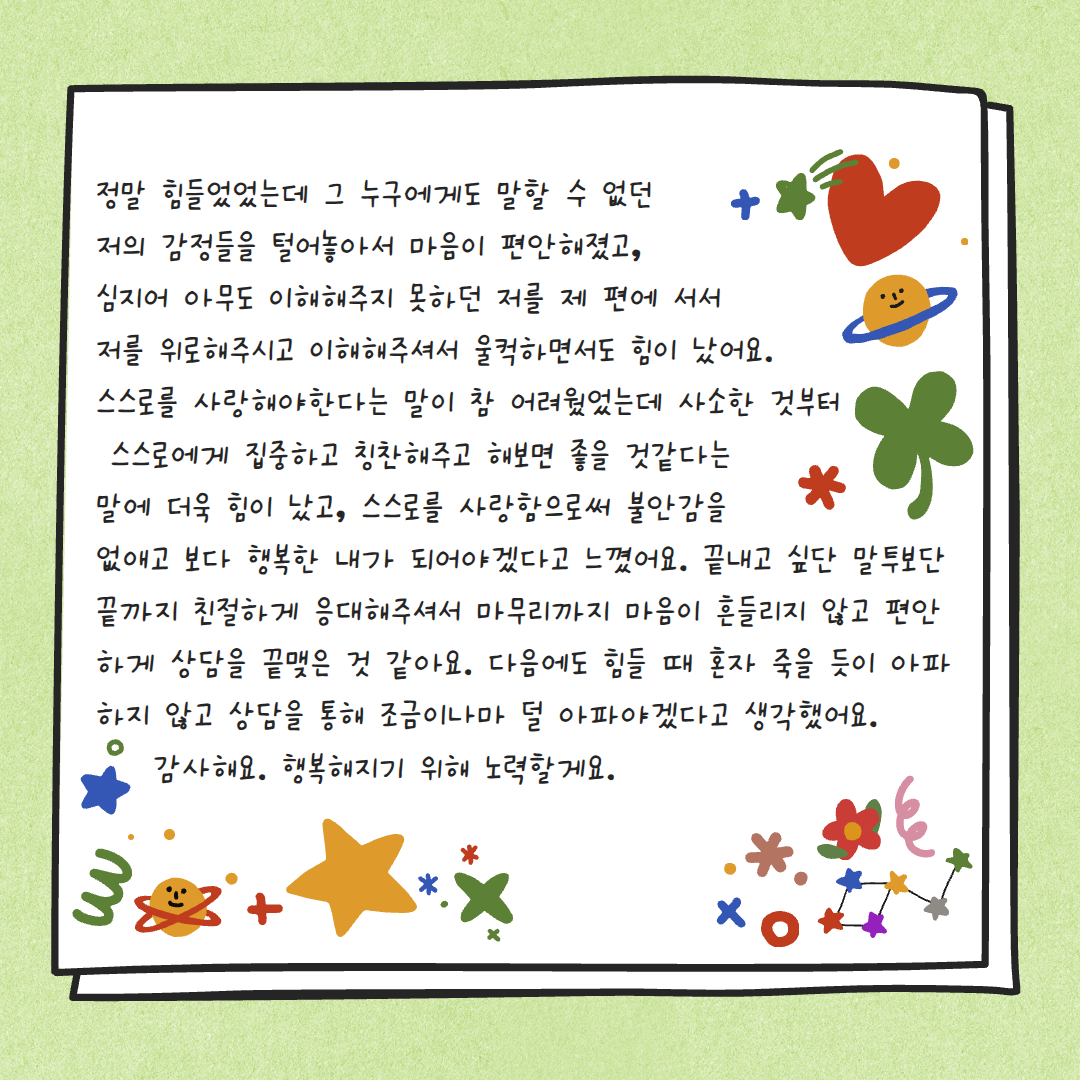 정말 힘들었었는데 그 누구에게도 말할 수 없던
저의 감정들을 털어놓아서 마음이 편안해졌고,
심지어 아무도 이해해주지 못하던 저를 제 편에 서서
저를 위로해주시고 이해해주셔서 울컥하면서도 힘이 났어요.
스스로를 사랑해야한다는 말이 참 어려웠었는데 사소한 것부터
스스로에게 집중하고 칭찬해주고 해보면 좋을 것같다는
말에 더욱 힘이 났고, 스스로를 사랑함으로써 불안감을
없애고 보다 행복한 내가 되어야겠다고 느꼈어요. 끝내고 싶단 말투보단
끝까지 친절하게 응대해주셔서 마무리까지 마음이 흔들리지 않고 편안
하게 상담을 끝맺은 것 같아요. 다음에도 힘들 때 혼자 죽을 듯이 아파
하지 않고 상담을 통해 조금이나마 덜 아파야겠다고 생각했어요.
감사해요. 행복해지기 위해 노력할게요.